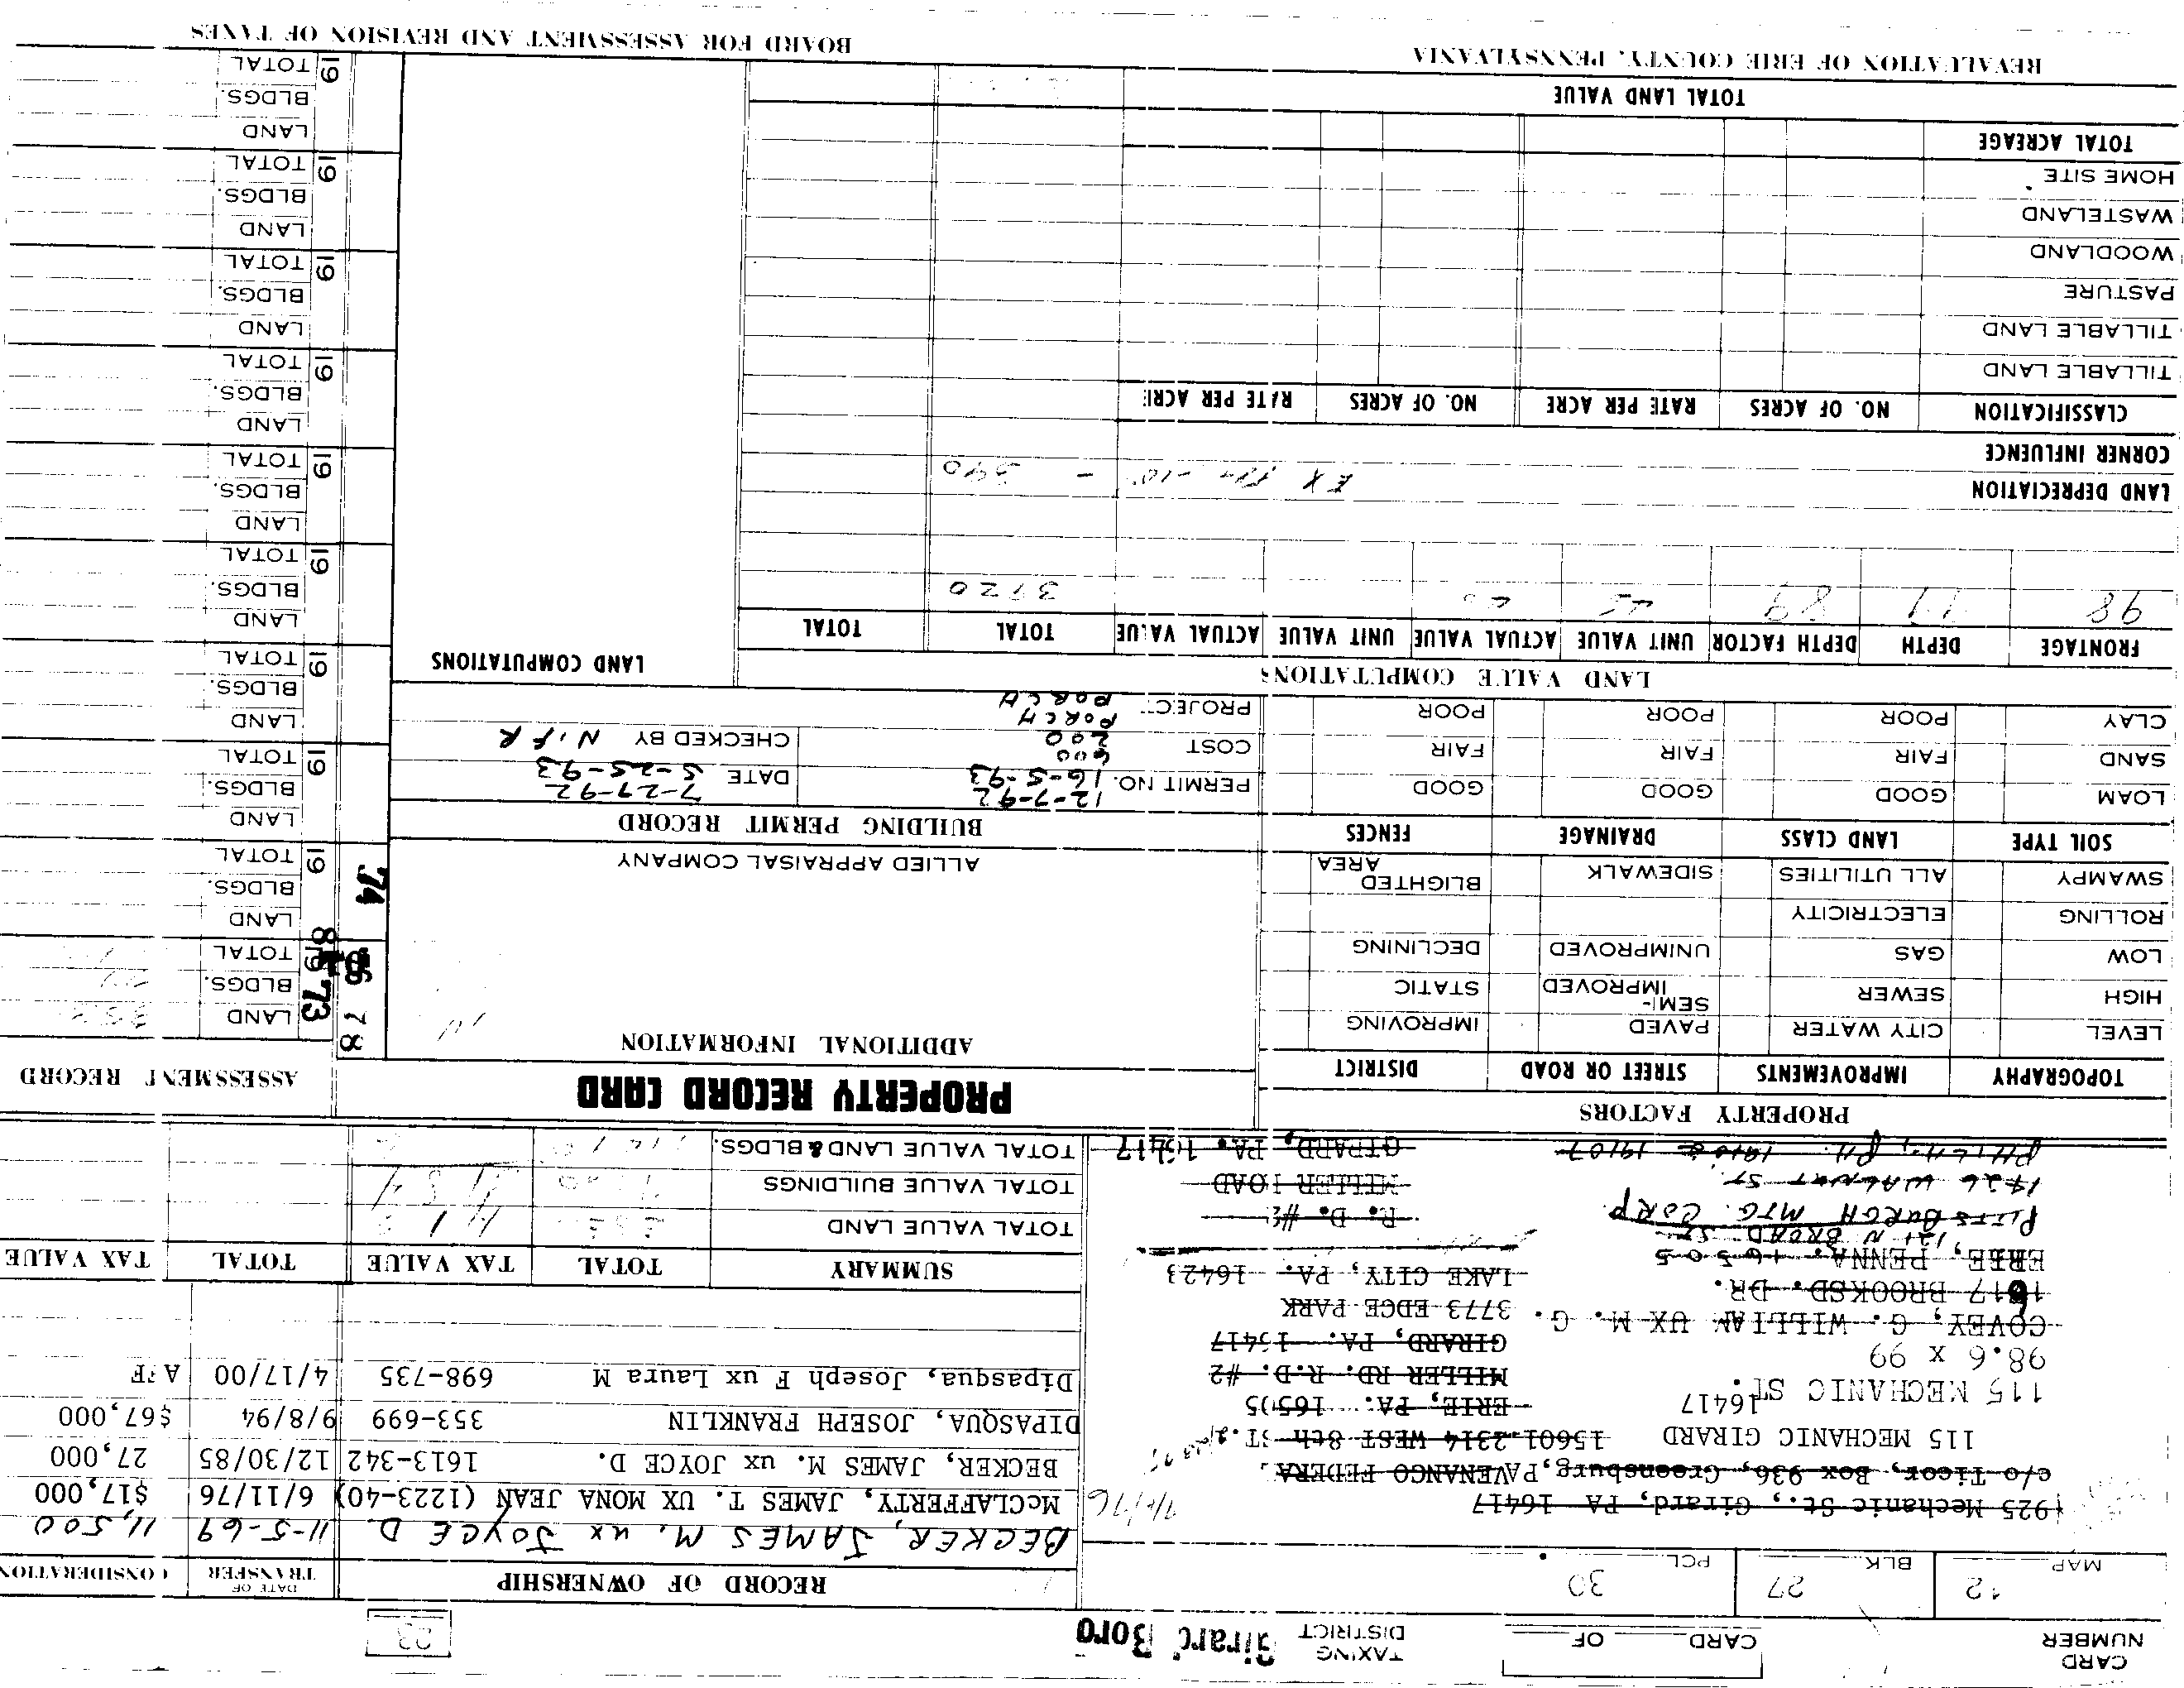 CARD NUMBER
CARD OF
TAXING DISTRICT Girard Boro
23
MAP 12 BLK 27 PCL 30
RECORD OF OWNERSHIP DATE OF TRANSFER CONSIDERATION
BECKER, JAMES M. ux JOYCE D 11-5-69 11,500
McCLAFFERTY, JAMES T. UX MONA JEAN (1223-40) 6/11/76 $17,000
BECKER, JAMES M. ux JOYCE D. 1613-342 12/30/85 27,000
DIPASQUA, JOSEPH FRANKLIN 353-699 9/8/94 $67,000
Dipasqua, Joseph F ux Laura M 698-735 4/17/00 AFF
925 Mechanic St., Girard, PA 16417
c/o Ticor, Box 936, Greensburg, PA
15601
115 MECHANIC GIRARD
16417
115 MECHANIC ST.
98.6 x 99
COVEY, G. WILLIAM UX M. G.
1617 BROOKSD. DR.
ERIE, PENNA. 16505
121 N BROAD ST
PITTSBURGH MTG. CORP.
1426 WALNUT ST.
PHILA., PA. 19102 19107
VENANGO FEDERAL
2314 WEST 8th ST.
ERIE, PA. 16505
MILLER RD. R.D. #2
GIRARD, PA. 16417
3773 EDGE PARK
LAKE CITY, PA. 16423
R. D. #2
MILLER ROAD
GIRARD, PA. 16417
SUMMARY TOTAL TAX VALUE TOTAL TAX VALUE
TOTAL VALUE LAND
TOTAL VALUE BUILDINGS
TOTAL VALUE LAND & BLDGS.
PROPERTY FACTORS
TOPOGRAPHY IMPROVEMENTS STREET OR ROAD DISTRICT
LEVEL CITY WATER PAVED IMPROVING
HIGH SEWER SEMI-IMPROVED STATIC
LOW GAS UNIMPROVED DECLINING
ROLLING ELECTRICITY
SWAMPY ALL UTILITIES SIDEWALK BLIGHTED AREA
SOIL TYPE LAND CLASS DRAINAGE FENCES
LOAM GOOD GOOD GOOD
SAND FAIR FAIR FAIR
CLAY POOR POOR POOR
PROPERTY RECORD CARD
ADDITIONAL INFORMATION
ALLIED APPRAISAL COMPANY
BUILDING PERMIT RECORD
PERMIT NO. 12-7-92 DATE 7-27-92
16-5-93 5-25-93
COST 600 CHECKED BY N.F.R
200
PROJECT PORCH
PORCH
LAND VALUE COMPUTATIONS
FRONTAGE DEPTH DEPTH FACTOR UNIT VALUE ACTUAL VALUE UNIT VALUE ACTUAL VALUE TOTAL TOTAL
98 89 3720
LAND COMPUTATIONS
LAND DEPRECIATION
CORNER INFLUENCE
CLASSIFICATION NO. OF ACRES RATE PER ACRE NO. OF ACRES RATE PER ACRE
TILLABLE LAND
TILLABLE LAND
PASTURE
WOODLAND
WASTELAND
HOME SITE
TOTAL ACREAGE
TOTAL LAND VALUE
ASSESSMENT RECORD
78
73
LAND
BLDGS.
19 TOTAL
74
LAND
BLDGS.
19 TOTAL
LAND
BLDGS.
19 TOTAL
LAND
BLDGS.
19 TOTAL
LAND
BLDGS.
19 TOTAL
LAND
BLDGS.
19 TOTAL
LAND
BLDGS.
19 TOTAL
LAND
BLDGS.
19 TOTAL
LAND
BLDGS.
19 TOTAL
LAND
BLDGS.
19 TOTAL
REVALUATION OF ERIE COUNTY, PENNSYLVANIA
BOARD FOR ASSESSMENT AND REVISION OF TAXES